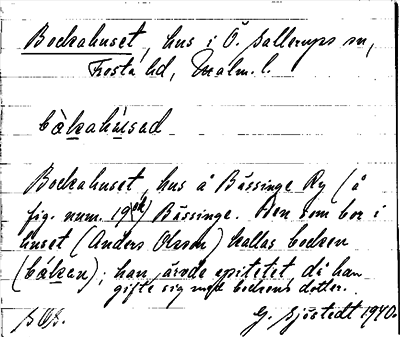 Bockahuset, hus i Ö. Sallerups sn,
Frosta hd, Malm. l.
bòkahúsad
Bockahuset, hus å Bässinge Ry (å
fig. num. 19) Bässinge. Den som bor i
huset (Anders Olsson) kallas bocken
(bóken); han ärvde epitetet då han
gifte sig med bockens dotter.
G. Sjöstedt 1940.